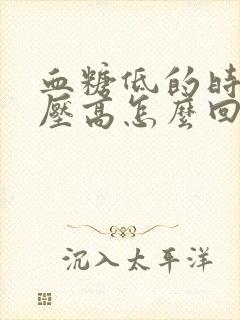 血糖低的時
壓高怎麼回
沉入太平洋